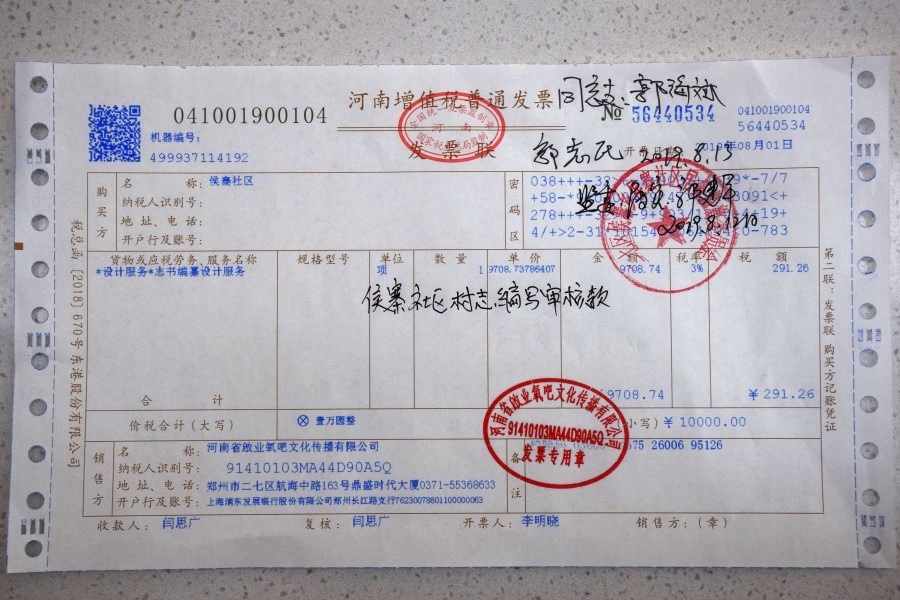 041001900104
河南增值税普通发票
同意
No 56440534
041001900104
56440534
机器编号:
499937114192
发票联
2019.8.13
开票日期: 2019年08月01日
购买方
名 称: 侯寨社区
纳税人识别号:
地址、电话:
开户行及账号:
密码区
2019.8.12日
货物或应税劳务、服务名称 规格型号 单位 数量 单价 金额 税率 税额
*设计服务*志书编纂设计服务 项 1 9708.73786407 9708.74 3% 291.26
侯寨社区村志编写审核款
合计 9708.74 ¥291.26
价税合计(大写) ⊗ 壹万圆整 (小写) ¥10000.00
销售方
名 称: 河南省啟业氧吧文化传播有限公司
纳税人识别号: 91410103MA44D90A5Q
地址、电话: 郑州市二七区航海中路163号鼎盛时代大厦0371-55368633
开户行及账号: 上海浦东发展银行股份有限公司郑州长江路支行76230078801100000063
备注
675 26006 95126
河南省啟业氧吧文化传播有限公司
91410103MA44D90A5Q
发票专用章
收款人: 闫思广 复核: 闫思广 开票人: 李明晓 销售方:(章)
税总函〔2018〕670号东港股份有限公司
第二联:发票联 购买方记账凭证